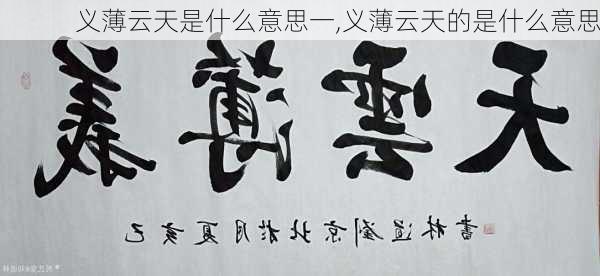 义薄云天是什么意思一,义薄云天的是什么意思
義薄雲天
己亥夏月於北京劉道林書